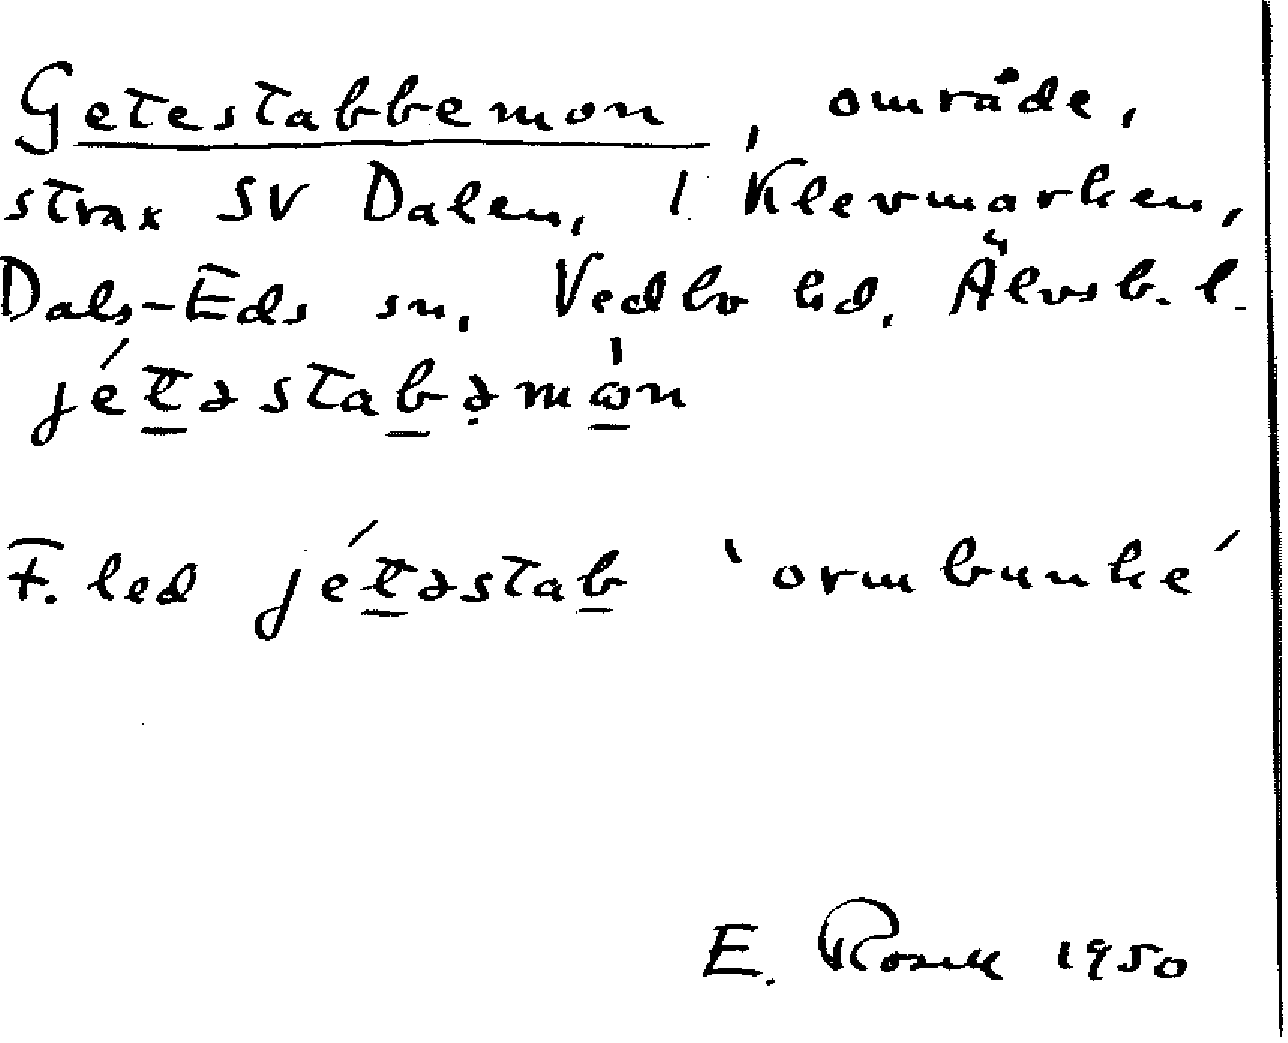 Getestabbemon, område,
strax SV Dalen, 1 Klevmarken,
Dals-Eds sn, Vedbo hd, Älvsb. l.
jét̲əstab̲ə̣mὼ̲n
F. led jét̲əstab̲ 'ormbunke'
E. Rosell 1950